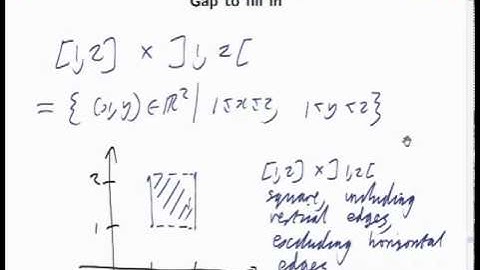 Gap to fill in
[1,2] × ]1,2[
= { (x,y) ∈ ℝ² | 1≤x≤2, 1<y<2 }
2
1
[1,2] × ]1,2[
square, including
vertical edges,
excluding horizontal
edges